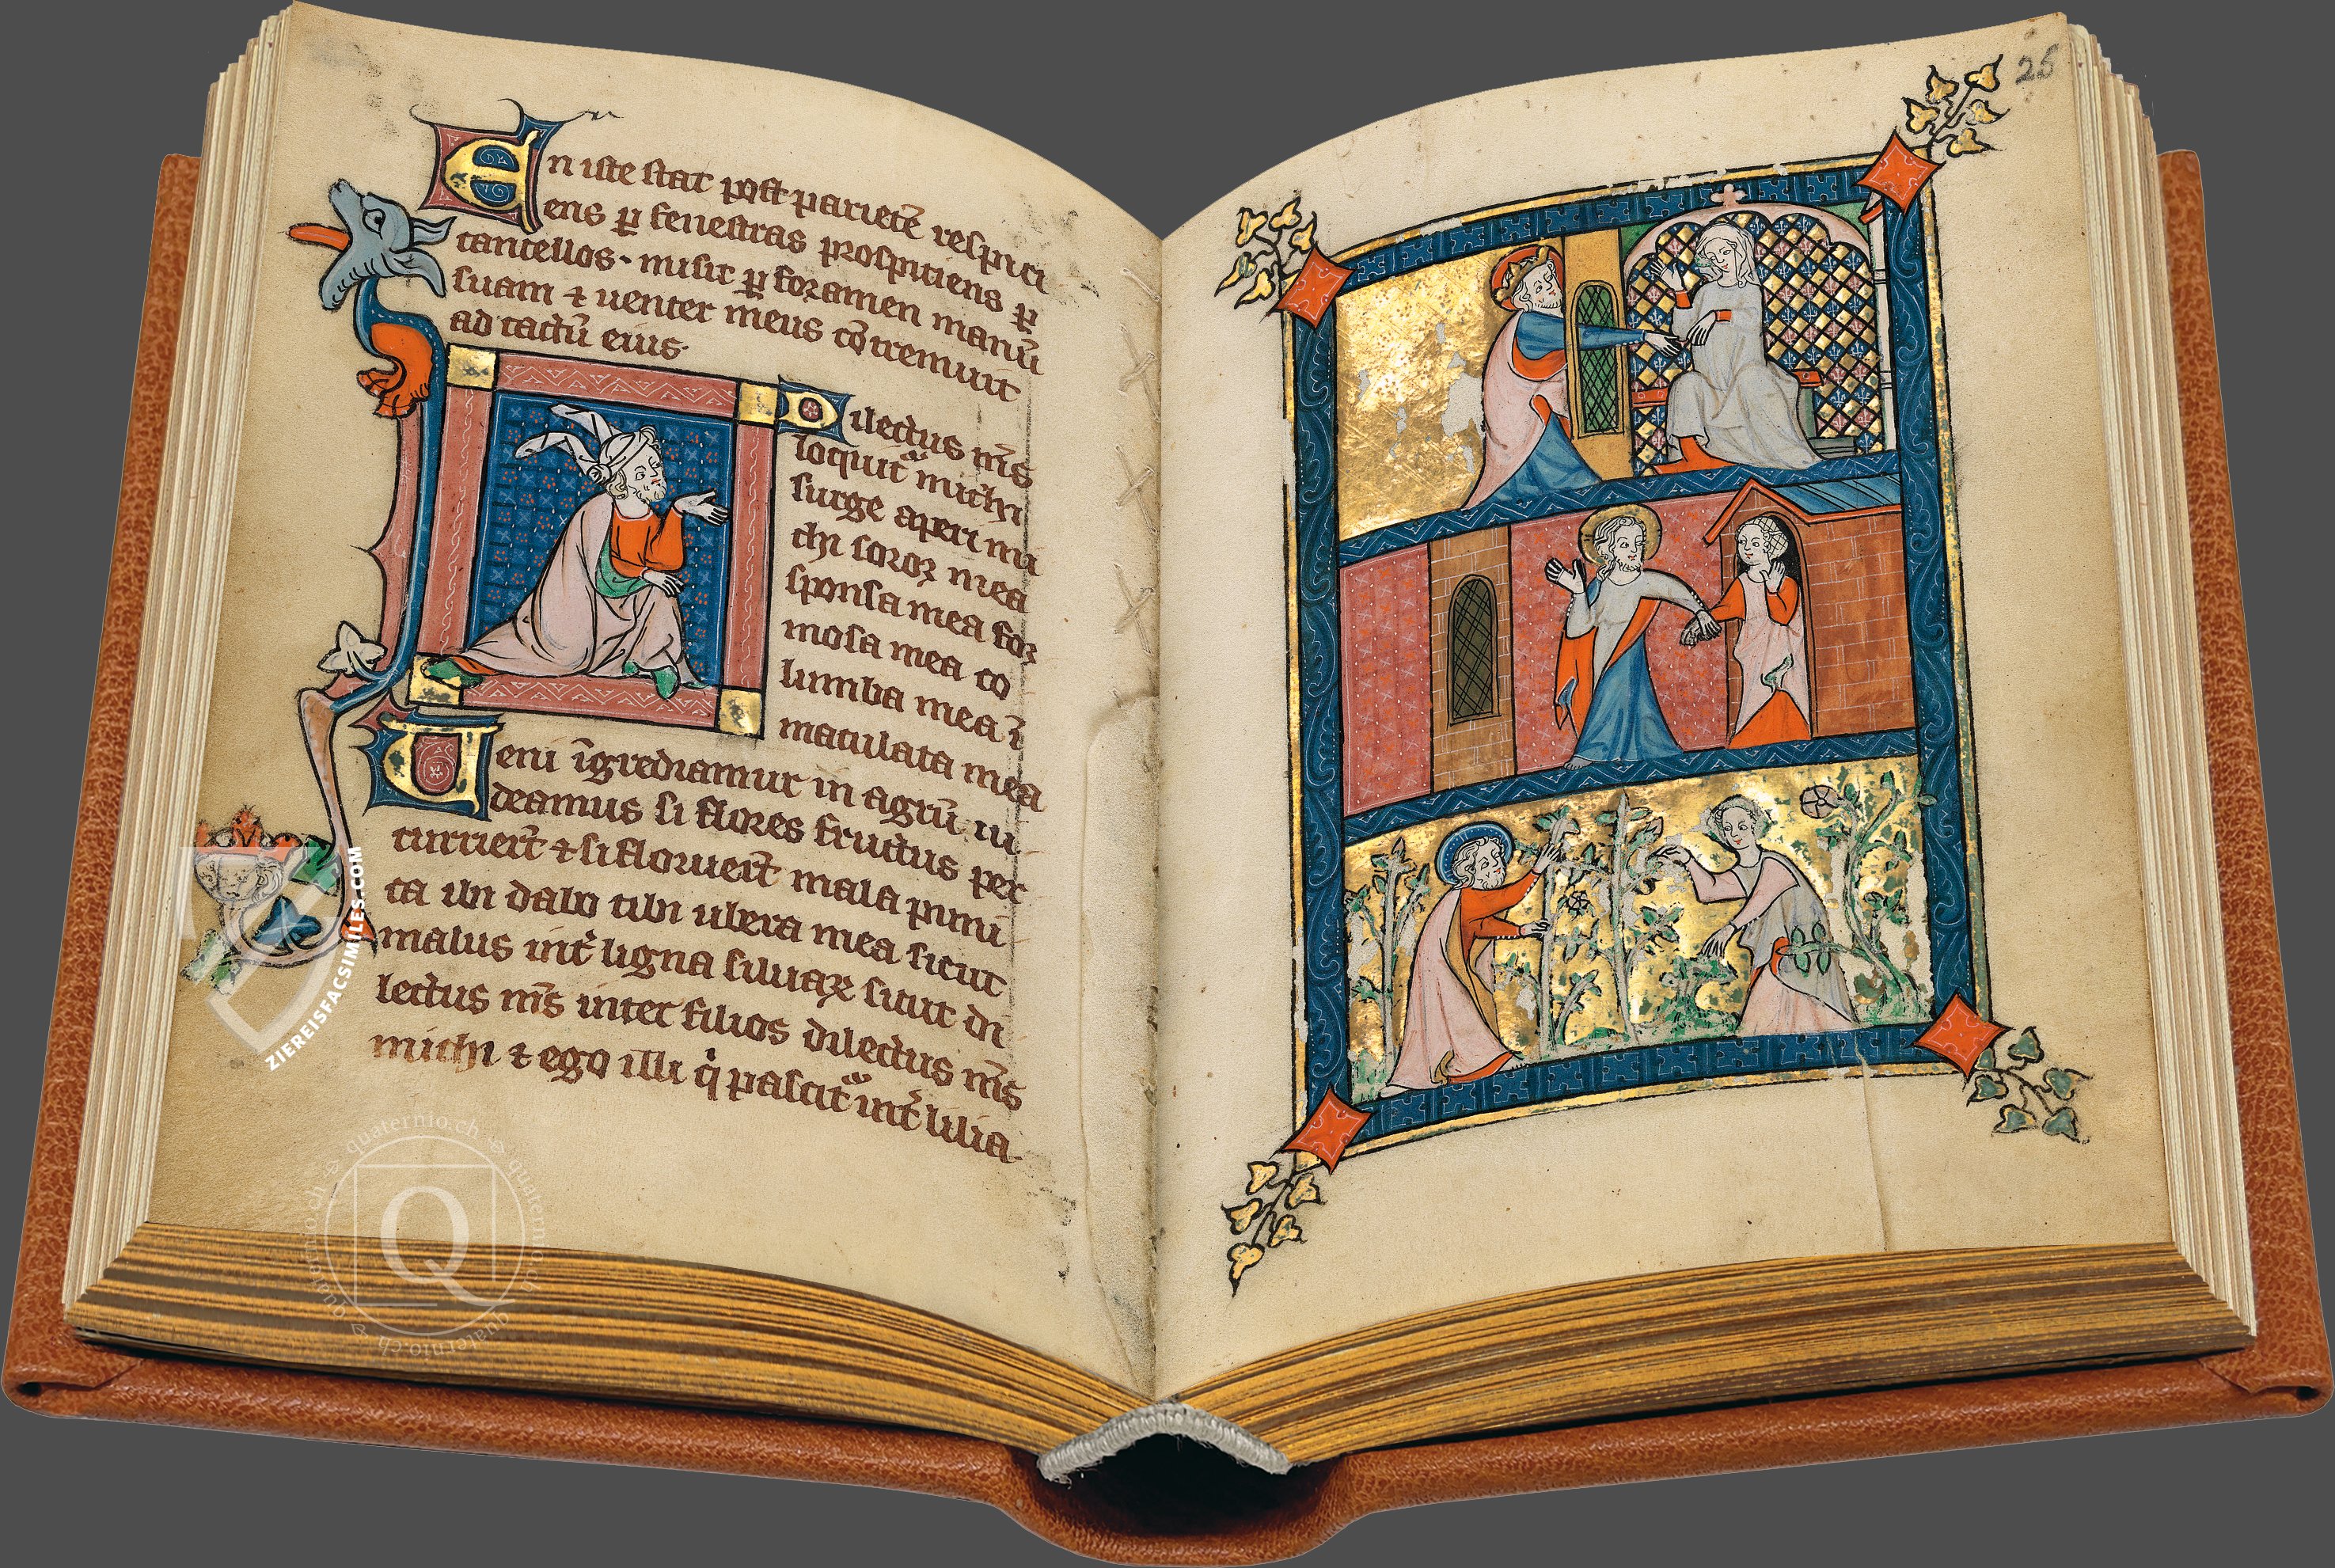 En iste stat post parietē respici
ens p̱ fenestras prospiciens p̱
cancellos. misit p̱ foramen manū
suam ⁊ uenter meus cōtremuit
ad tactū eius.
Dilectus m̄s
loquit᷑ michi
surge aperi mi
chi soror mea
sponsa mea for
mosa mea co
lumba mea ī
maculata mea
Veni īgrediamur in agrū. ui
deamus si flores fructus par
turier̄t ⁊ si floruer̄t mala puni
ca ibi dabo tibi ubera mea sicut
malus int̄ ligna siluaꝝ sicut di
lectus m̄s inter filios dilectus m̄s
michi ⁊ ego illi q̇ pascit᷑ int̄ lilia.
25
ZIEREISFACSIMILES.COM
Q
quaternio.ch quaternio.ch quaternio.ch quaternio.ch